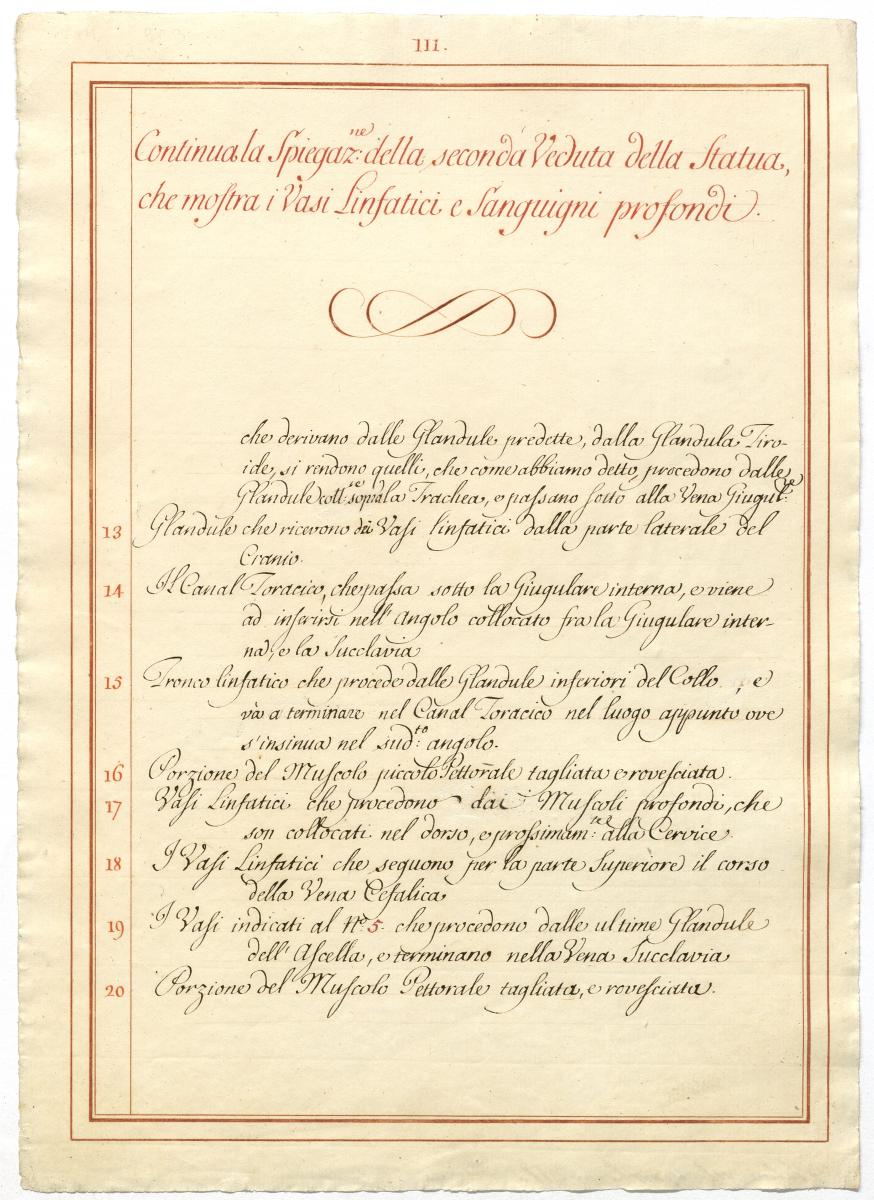 III.
Continua la Spiegaz:ne della seconda Veduta della Statua,
che mostra i Vasi Linfatici e Sanguigni profondi.
che derivano dalle Glandule predette, dalla Glandula Tiro-
ide, si rendono quelli, che come abbiamo detto, procedono dalle
Glandule coll:te sopra la Trachea, e passano sotto alla Vena Giugul:re
13 Glandule che ricevono dei Vasi linfatici dalla parte laterale del
Cranio.
14 Il Canal Toracico, che passa sotto la Giugulare interna, e viene
ad inserirsi nell' Angolo collocato fra la Giugulare inter-
na, e la Succlavia
15 Tronco linfatico che procede dalle Glandule inferiori del Collo, e
và a terminare nel Canal Toracico nel luogo appunto ove
s'insinua nel sud:to angolo.
16 Porzione del Muscolo piccolo Pettorale tagliata e rovesciata.
17 Vasi Linfatici che procedono dai Muscoli profondi, che
son collocati nel dorso, e prossimam:te alla Cervice.
18 I Vasi Linfatici che seguono per la parte Superiore il corso
della Vena Cefalica
19 I Vasi indicati al N.o 5. che procedono dalle ultime Glandule
dell' Ascella, e terminano nella Vena Succlavia
20 Porzione del Muscolo Pettorale tagliata, e rovesciata.